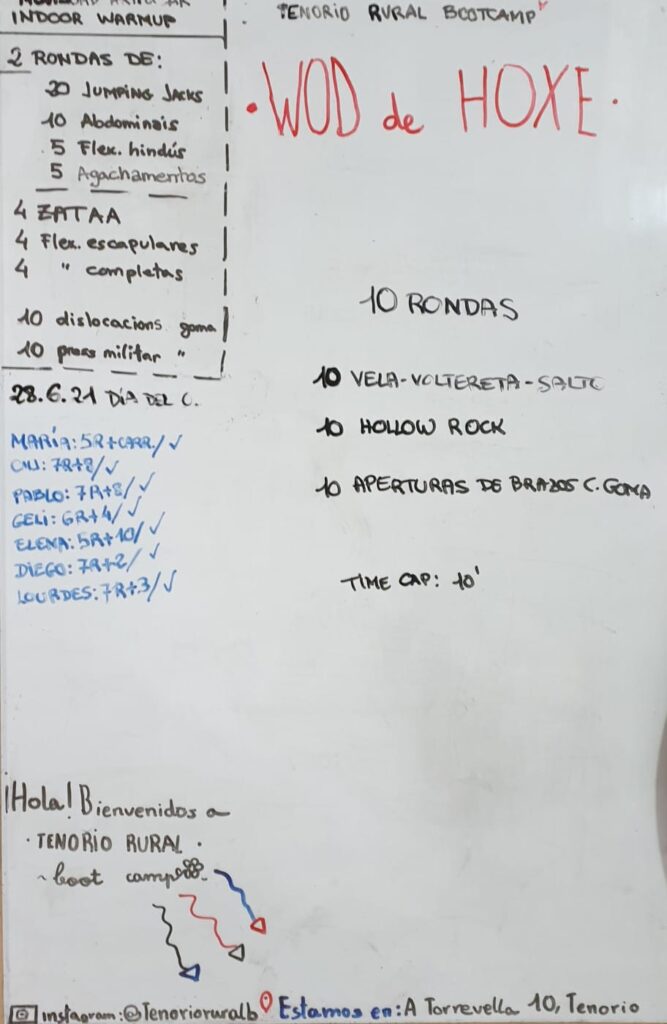 INDOOR WARMUP
2 RONDAS DE:
20 JUMPING JACKS
10 Abdominais
5 Flex. hindús
5 Agachamentos
4 ZATAA
4 Flex. escapulares
4 " completas
10 dislocacions goma
10 press militar "
28.6.21 DÍA DEL C.
MARÍA: 5R+CARR/✓
7R+8/✓
PABLO: 7R+8/✓
GELI: 6R+4/✓
ELENA: 5R+10/✓
DIEGO: 7R+2/✓
LOURDES: 7R+3/✓
TENORIO RURAL BOOTCAMP
·WOD de HOXE·
10 RONDAS
10 VELA-VOLTERETA-SALTO
10 HOLLOW ROCK
10 APERTURAS DE BRAZOS C. GOMA
TIME CAP: 10'
¡Hola! Bienvenidos a
· TENORIO RURAL ·
~ boot camp
instagram: @Tenorioruralb
Estamos en: A Torrevella 10, Tenorio